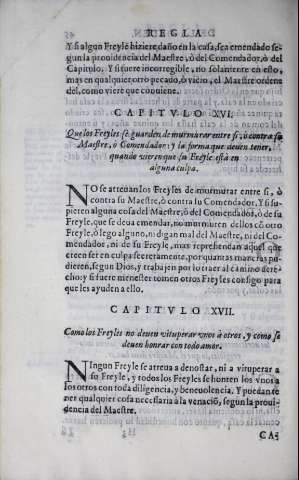 REGLA
Y si algun Freyle hiziere daño en la casa, sea emendado se-
gun la prouidencia del Maestre, ò del Comendador, ò del
Capitulo. Y si fuere incorregible, no solamente en esto,
mas en qualquier otro pecado, ò vicio, el Maestre ordene
del, como viere que conuiene.
CAPITVLO XVI.
Que los Freyles se guarden de murmurar entre si, ò contra su
Maestre, ò Comendador: y la forma que deuen tener,
quando vieren que su Freyle està en
alguna culpa.
NO se atreuan los Freyles de murmurar entre si, ò
contra su Maestre, ò contra su Comendador. Y si su-
pieren alguna cosa del Maestre, ò del Comendador, ò de su
Freyle, que se deua emendar, no murmuren dellos cõ otro
Freyle, ò lego alguno, ni digan mal del Maestre, ni del Co-
mendador, ni de su Freyle, mas reprehendan aquel que
creen ser en culpa secretamente, por quantas maneras pu-
dieren, segun Dios, y trabajen por lo traer al camino dere-
cho; y si fuere menester tomen otros Freyles consigo para
que les ayuden a ello.
CAPITVLO XVII.
Como los Freyles no deuen vituperar vnos à otros, y como se
deuen honrar con todo amor.
NIngun Freyle se atreua a denostar, ni a vituperar a
su Freyle, y todos los Freyles se honren los vnos a
los otros con toda diligencia, y beneuolencia. Y puedan te-
ner qualquier cosa necessaria à la venaciõ, segun la proui-
dencia del Maestre.
CA-